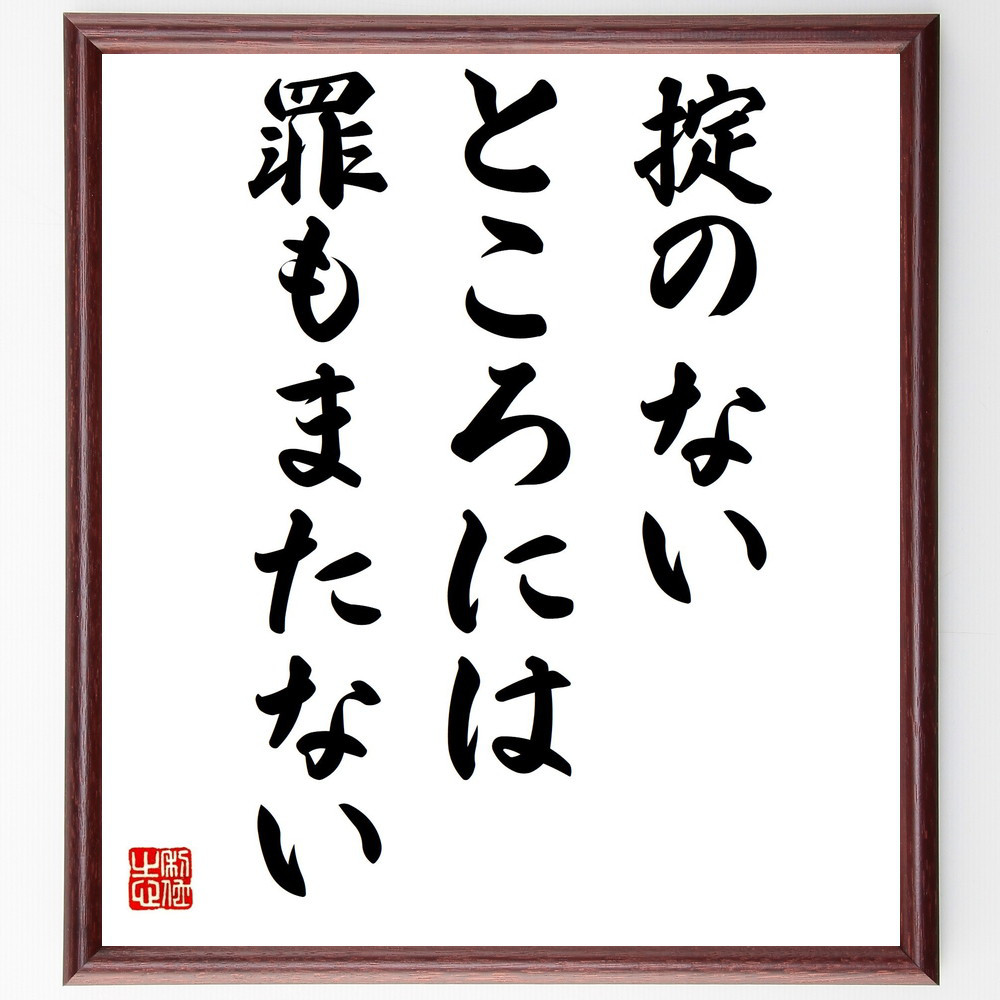 掟のない
ところには
罪もまたない